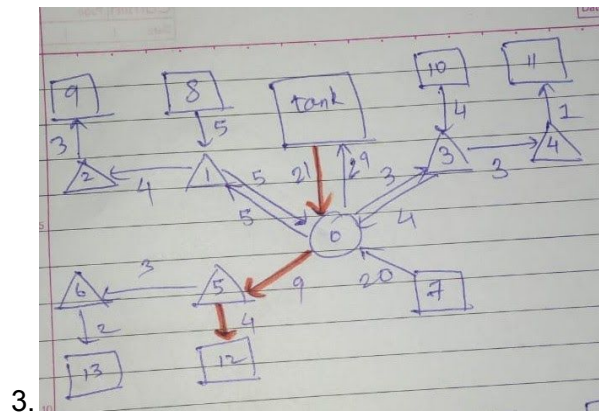 9
8
tank
10
11
3
5
4
1
2
4
1
5
5
21
29
3
4
3
3
4
0
6
3
5
9
20
7
2
4
13
12
3.